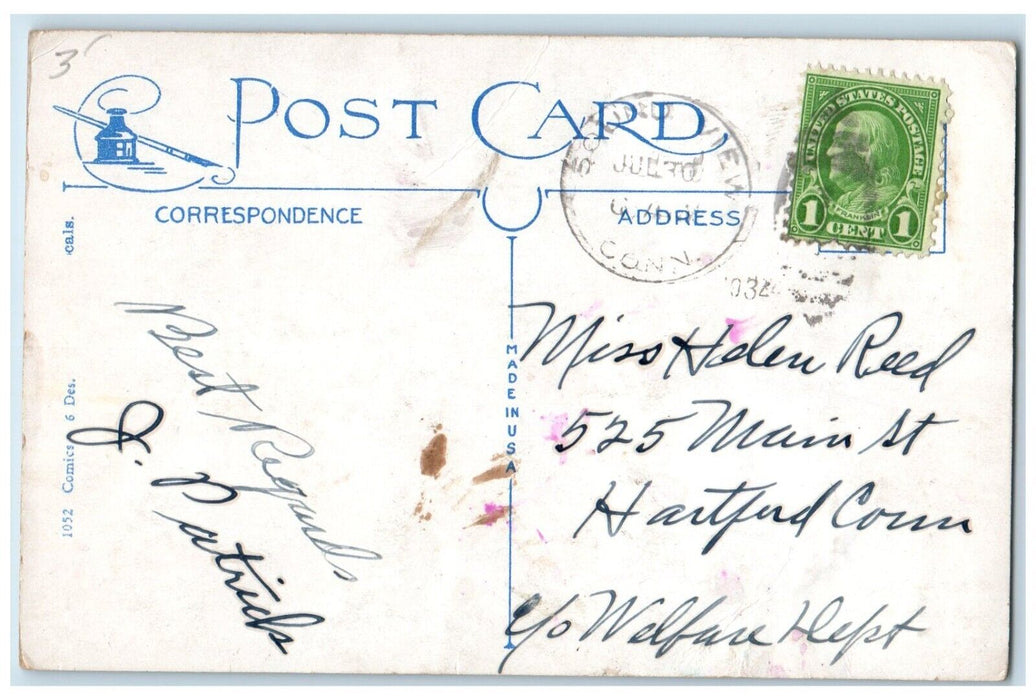 3
POST CARD
CORRESPONDENCE
ADDRESS
JUL 30
CONN.
UNITED STATES POSTAGE
FRANKLIN
1 CENT 1
cals.
1952 Comics 6 Des.
MADE IN USA
Best Regards
J. Patrick
Miss Helen Reed
525 Main St
Hartford Conn
c/o Welfare Dept